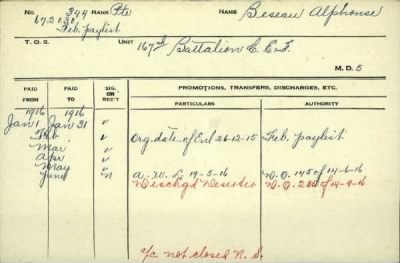 No. 344 RANK Pte NAME Beseau Alphonse
672130
Feb. paylist
T. O. S. UNIT 167th Battalion C.E.F.
M. D. 5
PAID FROM PAID TO SIG. OR REC'T PROMOTIONS, TRANSFERS, DISCHARGES, ETC.
PARTICULARS AUTHORITY
1916 1916
Jan 1 Jan 31 v
Feb. v Org. date of Enl 26-12-15 Feb. paylist
Mar v
Apr v
May v A. W. L. 19-5-16 D.O. 145 of 14-6-16
June N Dischgd Deserter D.O. 230 of 14-9-16
a/c not closed N. S.